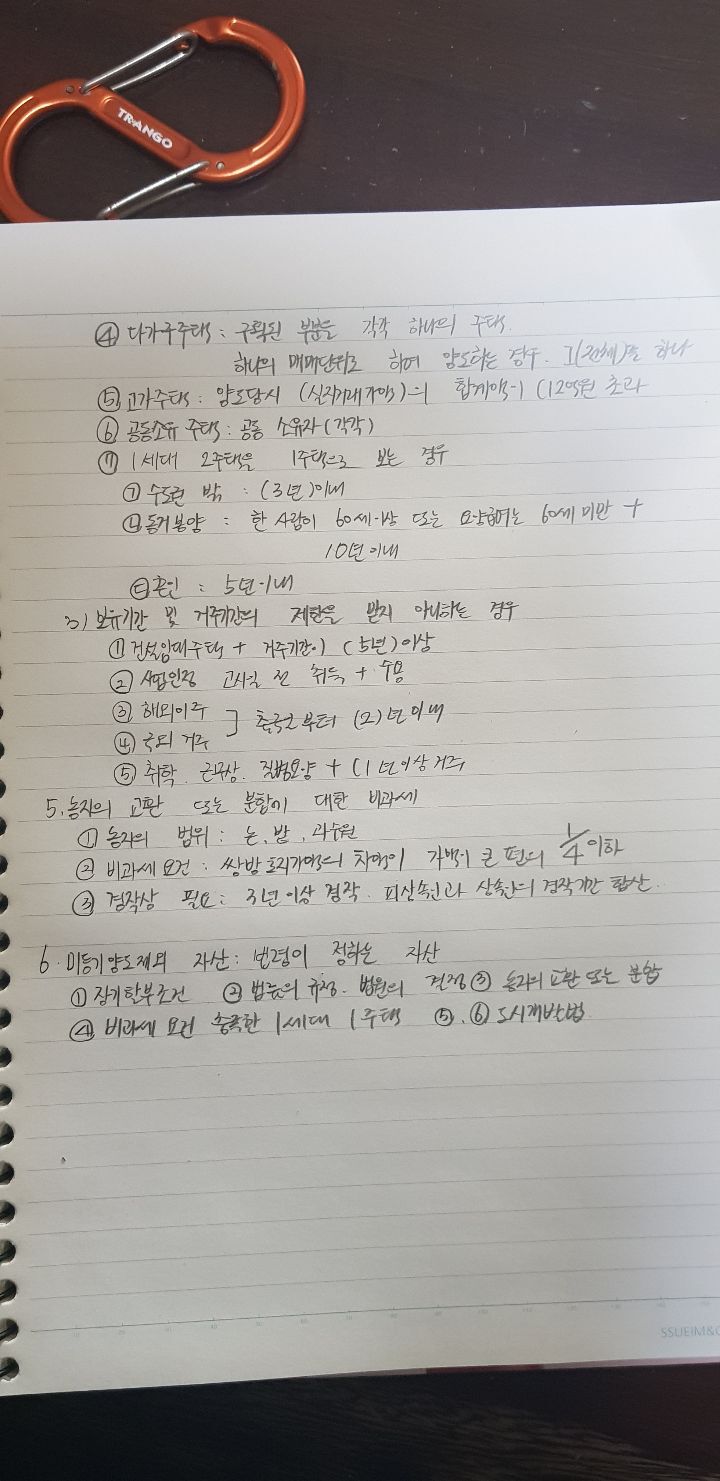 TRANGO
④ 다가구주택 : 구획된 부분을 각각 하나의 주택.
하나의 매매단위로 하여 양도하는 경우. 그(전체)를 하나
⑤ 고가주택 : 양도당시 (실지거래가액)의 합계액이 (12억원 초과
⑥ 공동소유 주택 : 공동 소유자(각각)
⑦ 1세대 2주택을 1주택으로 보는 경우
㉠ 수도권 밖 : (3년)이내
㉡ 동거봉양 : 한 사람이 60세이상 또는 요양급여는 60세 미만 +
10년 이내
㉢ 혼인 : 5년이내
3) 보유기간 및 거주기간의 제한을 받지 아니하는 경우
① 건설임대주택 + 거주기간이 (5년)이상
② 사업인정 고시일 전 취득 + 수용
③ 해외이주 ] 출국일부터 (2)년이내
④ 국외 거주
⑤ 취학. 근무상. 질병요양 + (1년이상 거주
5. 농지의 교환 또는 분합에 대한 비과세
① 농지의 범위 : 논, 밭, 과수원
② 비과세 요건 : 쌍방 토지가액의 차액이 가액이 큰 편의 1/4 이하
③ 경작상 필요 : 3년이상 경작. 피상속인과 상속인의 경작기간 합산.
6. 미등기양도제외 자산 : 법령이 정하는 자산
① 장기할부조건 ② 법률의 규정. 법원의 결정 ③ 농지의 교환 또는 분합
④ 비과세 요건 충족한 1세대 1주택 ⑤, ⑥ 도시개발법
SSUEIM&C